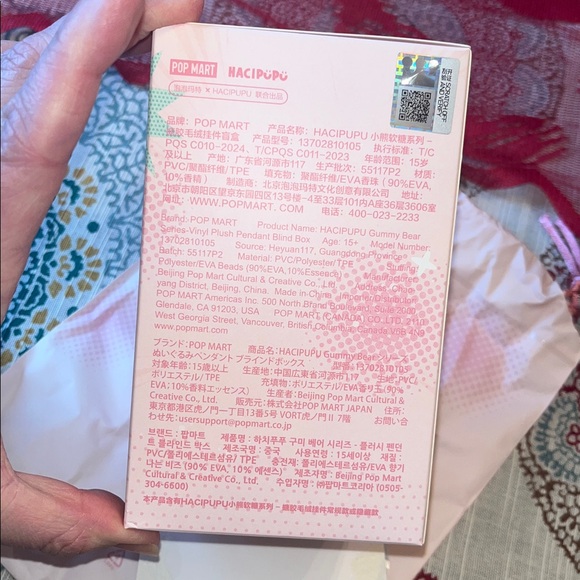 POP MART HACIPUPU
泡泡玛特 × HACIPUPU 联合出品
正版 SCRATCH OFF
AND VERIFY
品牌：POP MART 产品名称：HACIPUPU 小熊软糖系列-
搪胶毛绒挂件盲盒 产品型号：13702810105 执行标准：T/C
PQS C010-2024、T/CPQS C011-2023 年龄范围：15岁
及以上 产地：广东省河源市117 生产批次：55117P2 材质：
PVC/聚酯纤维/TPE 填充物：聚酯纤维/EVA香珠（90%EVA,
10%香精） 制造商：北京泡泡玛特文化创意有限公司 地址：
北京市朝阳区望京东园四区13号楼-4至33层101内A座36层3606室
网址：WWW.POPMART.COM 电话：400-023-2233
Brand: POP MART Product Name: HACIPUPU Gummy Bear
Series-Vinyl Plush Pendant Blind Box Age: 15+ Model Number:
13702810105 Source: Heyuan117, Guangdong Province
Batch: 55117P2 Material: PVC/Polyester/TPE Stuffing:
Polyester/EVA Beads (90%EVA,10%Essence) Manufacturer:
Beijing Pop Mart Cultural & Creative Co., Ltd. Address:
yang District, Beijing. Made in China Importer/Distributor:
POP MART Americas Inc. 500 North Brand Boulevard, Suite 2000,
Glendale, CA 91203, USA POP MART (CANADA) CO., LTD. 2110,
West Georgia Street, Vancouver, British Columbia, Canada
www.popmart.com
ブランド：POP MART 商品名：HACIPUPU Gummy Bear シリーズ
ぬいぐるみペンダント ブラインドボックス 型番：13702810105
対象年齢：15歳以上 生産地：中国広東省河源市117 生地：PVC/
ポリエステル/TPE 充填物：ポリエステル/EVA香り玉（90%
EVA；10%香料エッセンス） 生産者：Beijing Pop Mart Cultural &
Creative Co., Ltd. 販売元：株式会社POP MART JAPAN 住所：
東京都港区虎ノ門一丁目13番5号 VORT虎ノ門Ⅱ 7階 お問い合
わせ先：usersupport@popmart.co.jp
브랜드 : 팝마트 제품명 : 하치푸푸 구미 베어 시리즈 - 플러시 펜던
트 블라인드 박스 제조국명 : 중국 사용연령 : 15세이상 재질 :
PVC/폴리에스테르섬유/ TPE 충전재 : 폴리에스테르섬유/EVA 향기
나는 비즈 (90% EVA, 10% 에센스) 제조자명 : Beijing Pop Mart
Cultural & Creative Co., Ltd. 수입자명 : ㈜팝마트코리아 (0505-
304-6600)
本产品含有HACIPUPU小熊软糖系列-搪胶毛绒挂件常规款或隐藏款